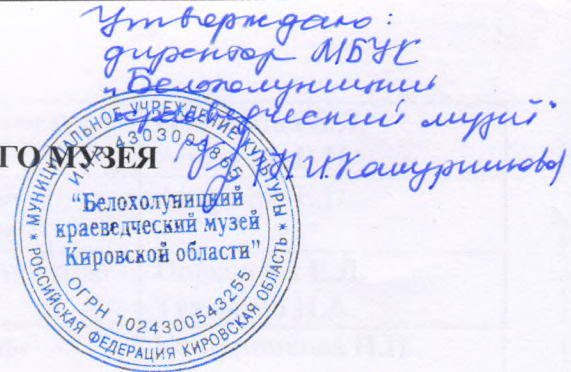 Утверждаю:
директор МБУК
"Белохолуницкий
краеведческий музей"
Н.И.Кашурникова
ГО МУЗЕЯ
МУНИЦИПАЛЬНОЕ УЧРЕЖДЕНИЕ КУЛЬТУРЫ
* РОССИЙСКАЯ ФЕДЕРАЦИЯ КИРОВСКАЯ ОБЛАСТЬ *
ИНН
"Белохолуницкий
краеведческий музей
Кировской области"
ОГРН 1024300543255